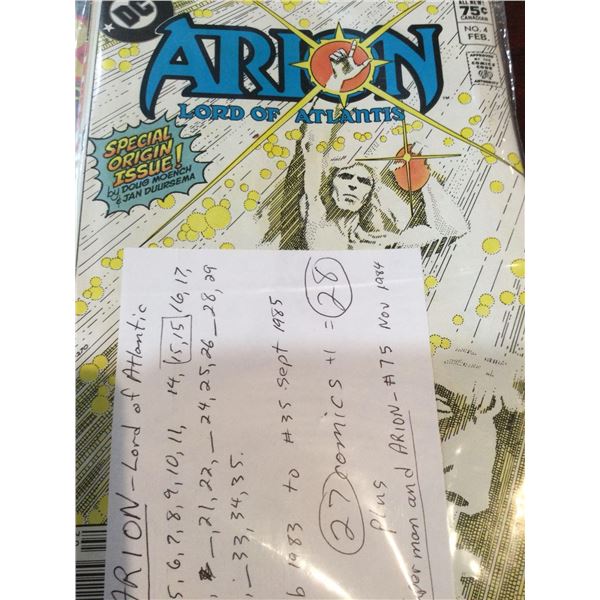 DC
ALL NEW!
75¢
CANADIAN
NO. 4
FEB.
APPROVED
BY THE
COMICS CODE
AUTHORITY
ARION
LORD OF ATLANTIS
TM
SPECIAL
ORIGIN
ISSUE!
by DOUG MOENCH
& JAN DUURSEMA
ARION - Lord of Atlantic
5, 6, 7, 8, 9, 10, 11, 14, 15, 15, 16, 17,
, _, 21, 22, _ 24, 25, 26 _ 28, 29
, _ 33, 34, 35.
b 1983 to #35 Sept 1985
27 comics +1 = 28
Plus
perman and ARION - #75 Nov 1984